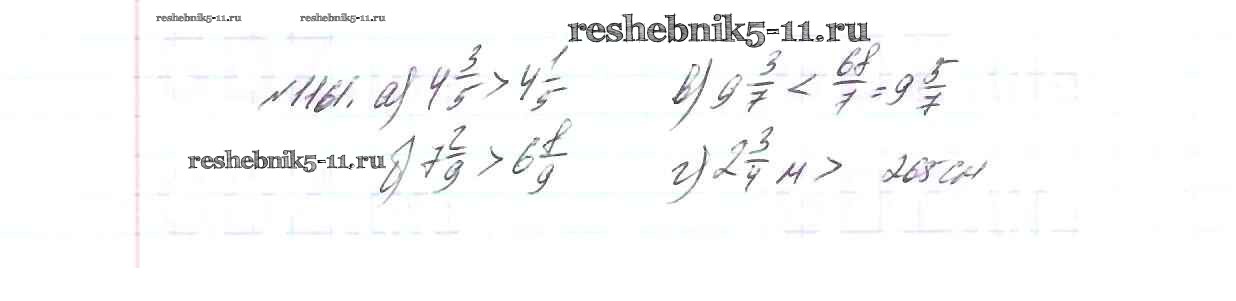 reshebnik5-11.ru reshebnik5-11.ru reshebnik5-11.ru
№1161. а) 4 3/5 > 4 1/5 в) 9 3/7 < 68/7 = 9 5/7
reshebnik5-11.ru б) 7 2/9 > 6 8/9 г) 2 3/4 м > 265 см